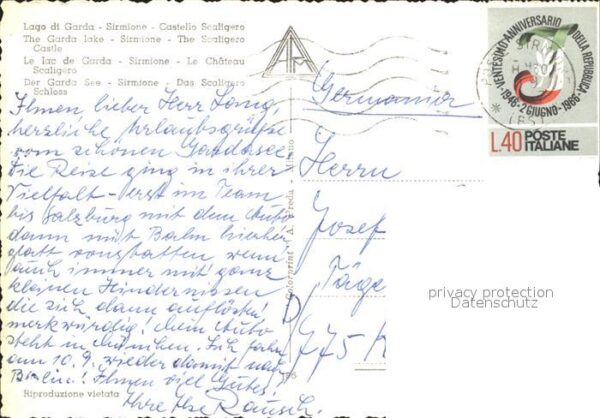 Lago di Garda - Sirmione - Castello Scaligero
The Garda lake - Sirmione - The Scaligero
Castle
Le lac de Garda - Sirmione - Le Château
Scaligero
Der Garda See - Sirmione - Das Scaligero
Schloss
Ihnen, lieber Herr
herzliche Urlaubsgrüße
vom schönen Gardasee
Die Reise ging in ihrer
Vielfalt - erst im Team
bis Salzburg mit dem Auto
dann mit Bahn hierher
glatt vonstatten wenn
auch immer mit ganz
kleinen Hindernissen
die sich dann auflösten
merkwürdig! Mein Auto
steht in München. Ich fahre
am 10.9. wieder damit nach
Berlin! Ihnen viel Gutes!
Ihre Ilse Rausch
Riproduzione vietata
Milano
Germania
Herrn
Josef
Jäge
D
775 K
VENTESIMO ANNIVERSARIO DELLA REPUBBLICA
1946-2 GIUGNO-1966
L.40 POSTE
ITALIANE
privacy protection
Datenschutz